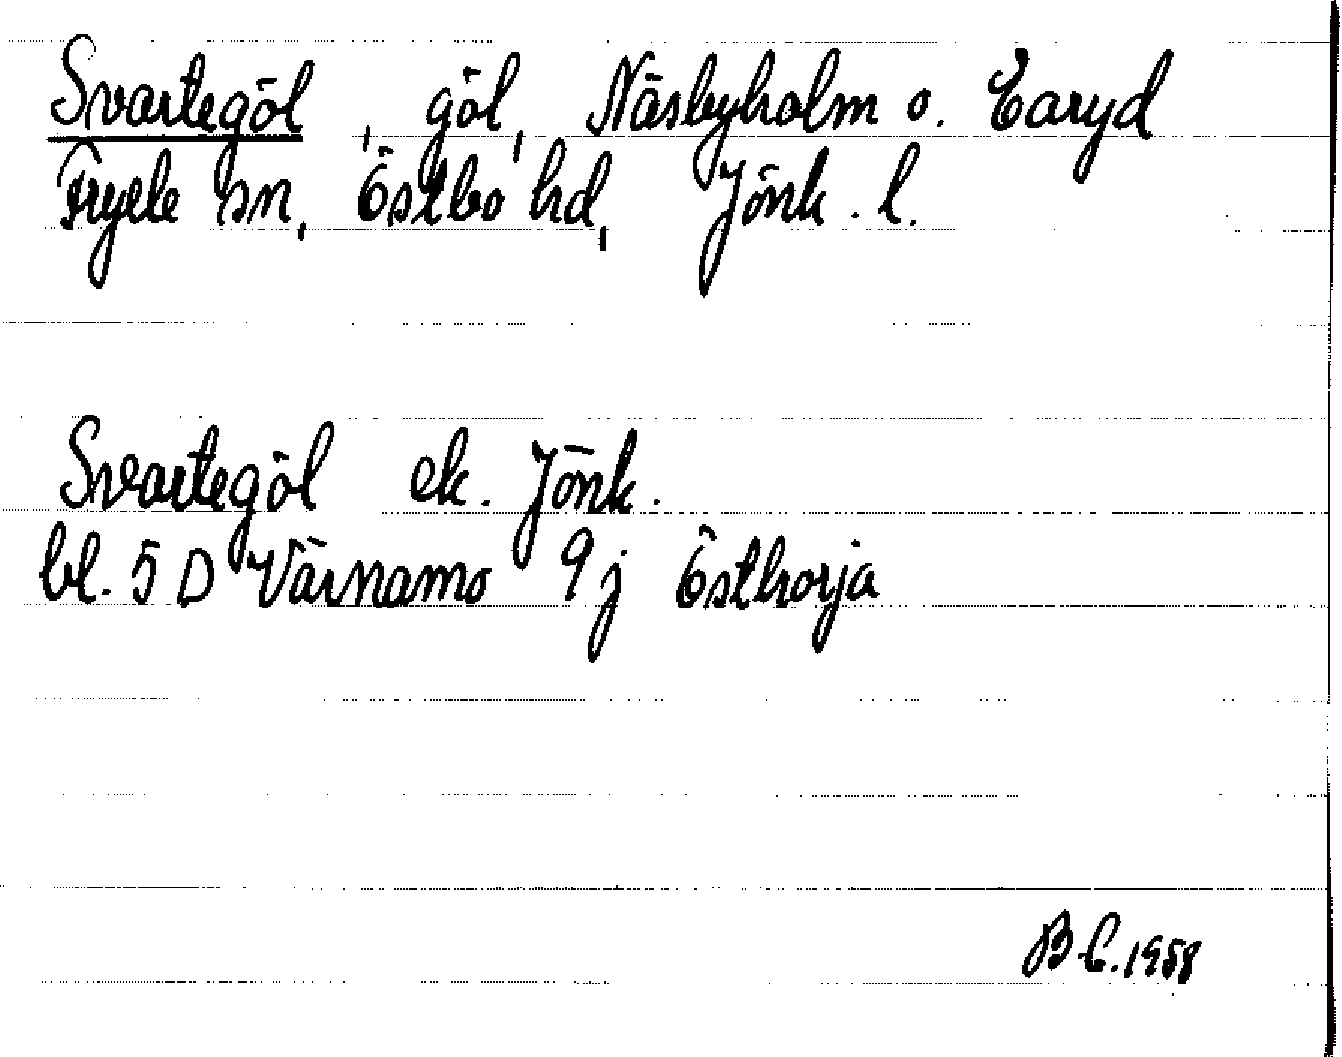 Svartegöl, göl, Näsbyholm o. Earyd
Fryele sn, Östbo hd, Jönk. l.
Svartegöl ek. Jönk.
bl. 5 D Värnamo 9 j Östhorja
B.C. 1958